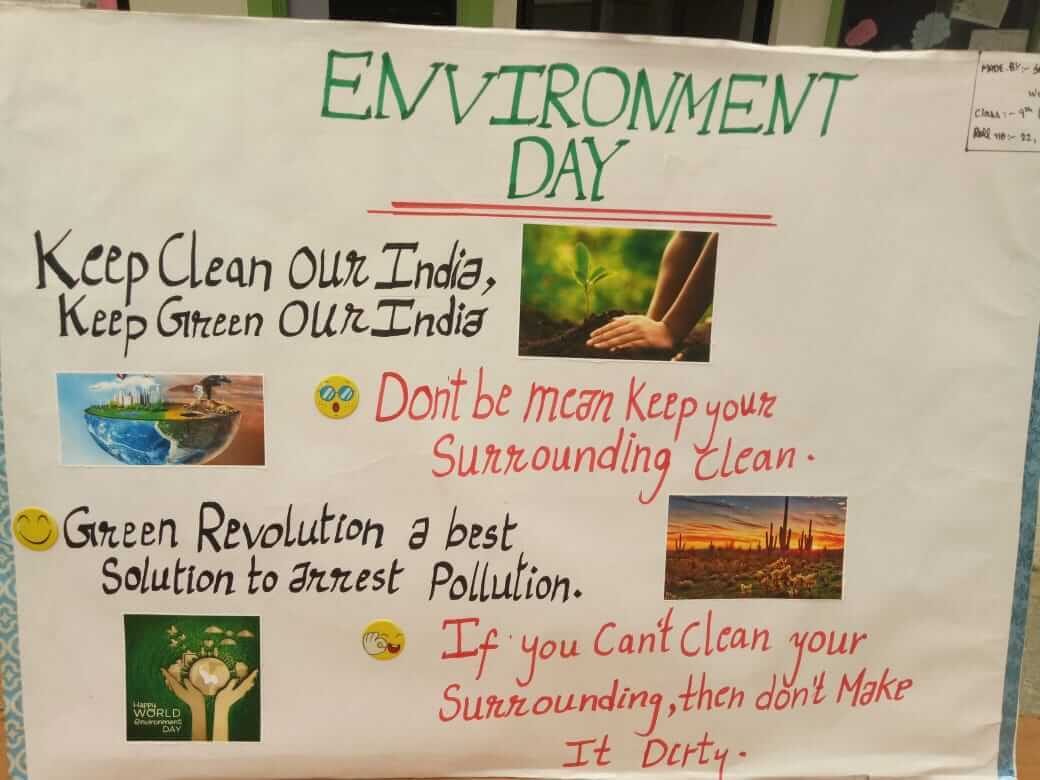 ENVIRONMENT
DAY
MADE BY :-
Class :- 9th
Roll no :- 22,
Keep Clean Our India,
Keep Green Our India
Don't be mean Keep your
Surrounding clean.
Green Revolution a best
Solution to arrest Pollution.
If you Can't Clean your
Surrounding, then don't Make
It Dirty.
Happy
WORLD
Environment
DAY